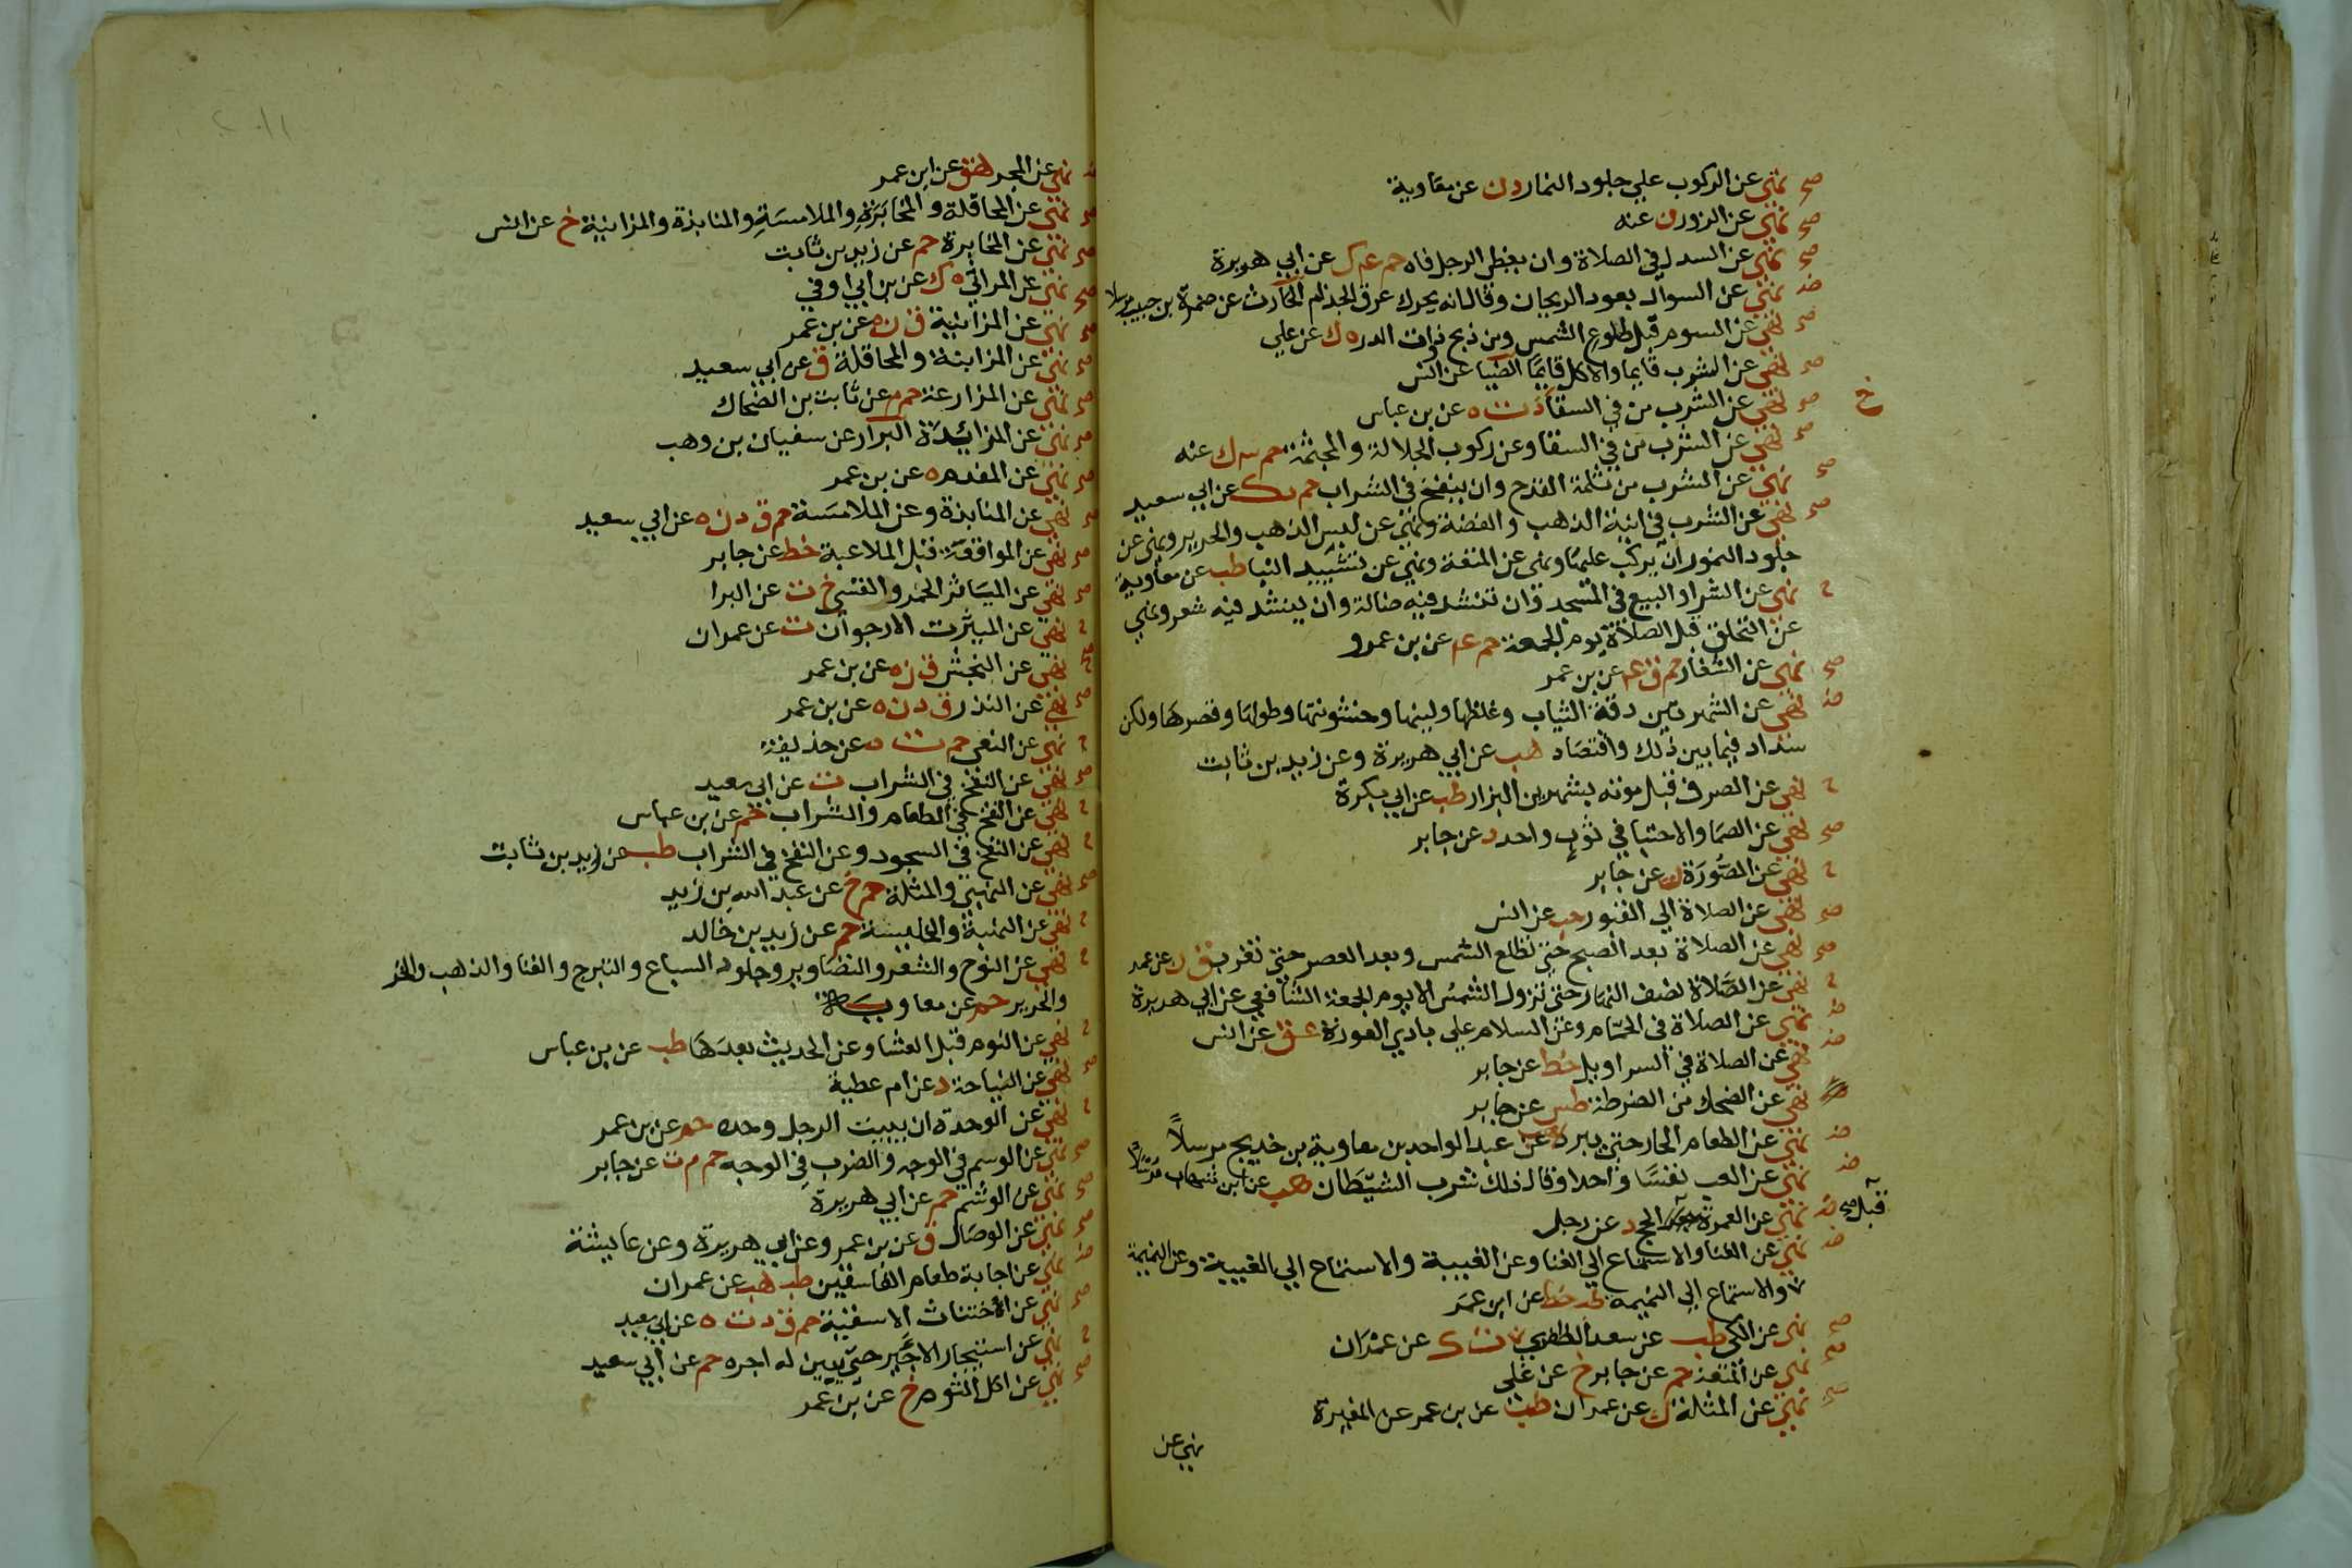 صح نهي عن الركوب علي جلود النمار د ن عن معاوية
صح نهي عن الزور ن عنه
صح نهي عن السدل في الصلاة وان يغطي الرجل فاه حم عم ك عن ابي هريرة
ض نهي عن السواك بعود الريحان وقال انه يحرك عرق الجذام الحارث عن ضمرة بن حبيب مرسلا
صح نهي عن السوم قبل طلوع الشمس وعن ذبح ذوات الدر ه ك عن علي
صح نهي عن الشرب قايما والاكل قايما الضيا عن انس
خ صح نهي عن الشرب من في السقا د ت ه عن بن عباس
صح نهي عن الشرب من في السقا وعن ركوب الجلالة والمجثمة حم ٣ ك عنه
صح نهي عن الشرب من ثلمة القدح وان ينفخ في الشراب حم د ك عن ابي سعيد
صح نهي عن الشرب في انية الذهب والفضة ونهي عن لبس الذهب والحرير ونهي عن
جلود النمور ان يركب عليها ونهي عن المتعة ونهي عن تشييد البنا طب عن معاوية
ح نهي عن الشرا والبيع في المسجد وان تنشد فيه ضالة وان ينشد فيه شعر ونهي
عن التحلق قبل الصلاة يوم الجمعة حم عم عن بن عمرو
صح نهي عن الشغار حم ق عم عن بن عمر
ض نهي عن الشهرتين دقة الثياب وغلظها ولينها وخشونتها وطولها وقصرها ولكن
سداد فيما بين ذلك واقتصاد هب عن ابي هريرة وعن زيد بن ثابت
ح نهي عن الصرف قبل موته بشهرين البزار طب عن ابي بكرة
صح نهي عن الصما والاحتبا في ثوب واحد د عن جابر
ح نهي عن الصورة ت عن جابر
صح نهي عن الصلاة الي القبور حب عن انس
صح نهي عن الصلاة بعد الصبح حتي تطلع الشمس وبعد العصر حتي تغرب ق ن عن عمر
ح نهي عن الصلاة نصف النهار حتي تزول الشمس الا يوم الجمعة الشافعي عن ابي هريرة
ض نهي عن الصلاة في الحمام وعن السلام علي بادي العورة عق عن انس
ض نهي عن الصلاة في السراويل خط عن جابر
نهي عن الضحك من الضرطة طس عن جابر
ض نهي عن الطعام الحار حتي يبرد هب عن عبد الواحد بن معاوية بن خديج مرسلاً
ض نهي عن العب نفسا واحدا وقال ذلك شرب الشيطان هب عن ابن شهاب مرسلاً
ض نهي عن العمرة قبل صح الحج د عن رجل
ض نهي عن الغنا والاستماع الي الغنا وعن الغيبة والاستماع الي الغيبة وعن النميمة
والاستماع الي النميمه طب خط عن ابن عمر
صح نهي عن الكي طب عن سعد الظفري ت ك عن عمران
صح نهي عن المتعة حم عن جابر خ عن علي
صح نهي عن المثلة ك عن عمران طب عن بن عمر عن المغيرة
نهي عن
ض نهي عن المجر هق عن ابن عمر
صح نهي عن المحاقلة والمخابرة والملامسة والمنابذة والمزابنة خ عن انس
صح نهي عن المخابرة حم عن زيد بن ثابت
صح نهي عن المراثي ه ك عن بن ابي اوفي
صح نهي عن المزابنة ق ن ه عن بن عمر
صح نهي عن المزابنة والمحاقلة ق عن ابي سعيد
صح نهي عن المزارعة حم م عن ثابت بن الضحاك
صح نهي عن المزايدة البزار عن سفيان بن وهب
صح نهي عن المفدم ه عن بن عمر
صح نهي عن المنابذة وعن الملامسة حم ق د ن ه عن ابي سعيد
صح نهي عن المواقعة قبل الملاعبة خط عن جابر
صح نهي عن المياثر الحمر والقسي خ ت عن البرا
ح نهي عن الميثرت الارجوان ت عن عمران
صح نهي عن النجش ق ن ه عن بن عمر
صح نهي عن النذر ق د ن ه عن بن عمر
ح نهي عن النعي حم ت ه عن حذيفة
صح نهي عن النفخ في الشراب ت عن ابي سعيد
ح نهي عن النفخ في الطعام والشراب حم عن بن عباس
ح نهي عن النفخ في السجود وعن النفخ في الشراب طب عن زيد بن ثابت
صح نهي عن النهبي والمثلة حم خ عن عبد الله بن زيد
ح نهي عن النهبة والخليسة حم عن زيد بن خالد
ح نهي عن النوح والشعر والتصاوير وجلود السباع والتبرج والغنا والذهب والخز
والحرير حم عن معاوية
ح نهي عن النوم قبل العشا وعن الحديث بعدها طب عن بن عباس
صح نهي عن النياحة د عن ام عطية
ح نهي عن الوحدة ان يبيت الرجل وحده حم عن بن عمر
صح نهي عن الوسم في الوجه والضرب في الوجه حم م ت عن جابر
صح نهي عن الوشم حم عن ابي هريرة
صح نهي عن الوصال ق عن بن عمر وعن ابي هريرة وعن عايشة
ض نهي عن اجابة طعام الفاسقين طب هب عن عمران
صح نهي عن الاختناث الاسقية حم ق د ت ه عن ابي سعيد
ح نهي عن استيجار الاجير حتي يبين له اجره حم عن ابي سعيد
صح نهي عن اكل الثوم خ عن بن عمر